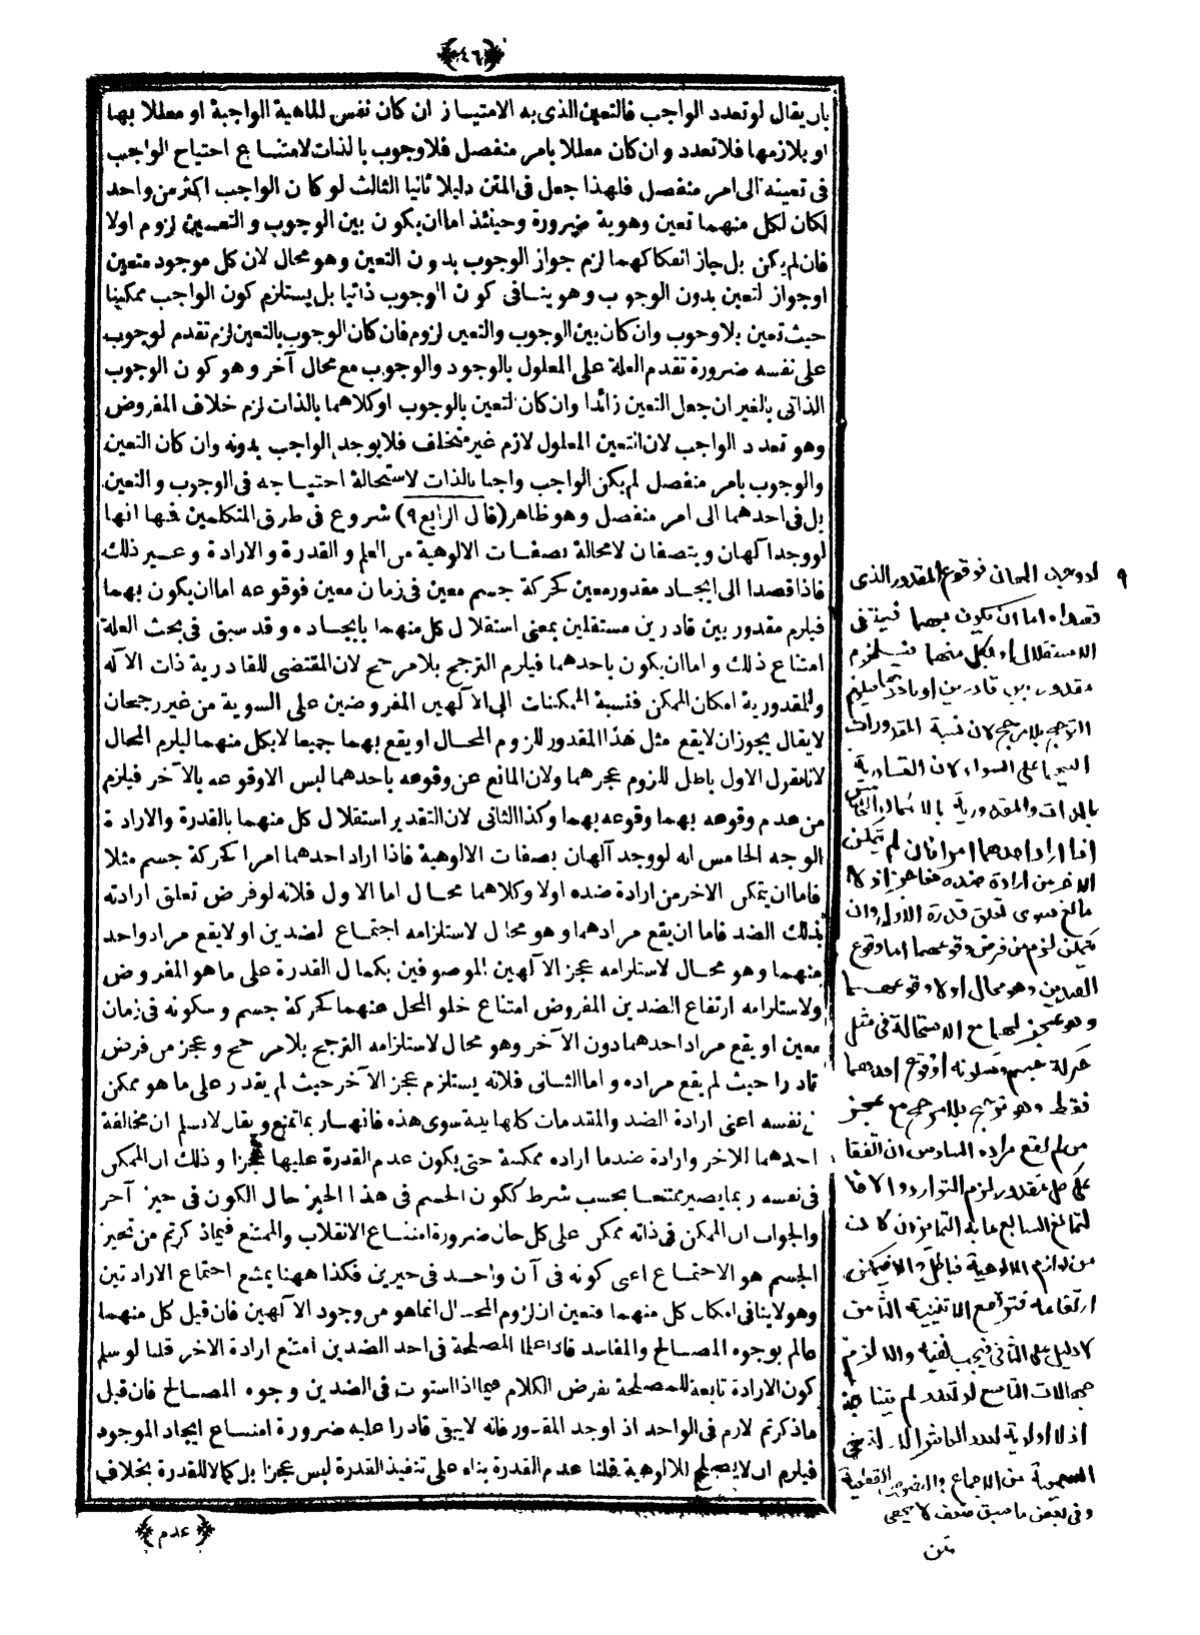 ﴿٤٦﴾
بان يقال لو تعدد الواجب فالتعين الذى به الامتياز ان كان نفس الماهية الواجبة او معللا بها
او بلازمها فلا تعدد و ان كان معللا بامر منفصل فلا وجوب بالذات لامتناع احتياج الواجب
فى تعينه الى امر منفصل فلهذا جعل فى المتن دليلا ثانيا الثالث لو كان الواجب اكثر من واحد
لكان لكل منهما تعين وهوية ضرورة وحينئذ اما ان يكون بين الوجوب و التعين لزوم اولا
فان لم يكن بل جاز انفكاكهما لزم جواز الوجوب بدون التعين وهو محال لان كل موجود متعين
او جواز التعين بدون الوجوب و هو ينافى كون الوجوب ذاتيا بل يستلزم كون الواجب ممكنا
حيث تعين بلا وجوب وان كان بين الوجوب والتعين لزوم فان كان الوجوب بالتعين لزم تقدم الوجوب
على نفسه ضرورة تقدم العلة على المعلول بالوجود والوجوب مع محال آخر وهو كون الوجوب
الذاتى بالغير ان جعل التعين زائدا وان كان التعين بالوجوب او كلاهما بالذات لزم خلاف المفروض
وهو تعدد الواجب لان التعين المعلول لازم غير متخلف فلا يوجد الواجب بدونه وان كان التعين
والوجوب بامر منفصل لم يكن الواجب واجبا بالذات لاستحالة احتياجه فى الوجوب و التعين
بل فى احدهما الى امر منفصل وهو ظاهر (قال الرابع ٩) شروع فى طرق المتكلمين فمنها انها
لو وجد آلهان و يتصفان لا محالة بصفات الالوهية من العلم و القدرة و الارادة و غير ذلك
فاذا قصدا الى ايجاد مقدور معين كحركة جسم معين فى زمان معين فوقوعه اما ان يكون بهما
فيلزم مقدور بين قادرين مستقلين بمعنى استقلال كل منهما بايجاده و قد سبق فى بحث العلة
امتناع ذلك و اما ان يكون باحدهما فيلزم الترجح بلا مرجح لان المقتضى للقادرية ذات الآله
والمقدورية امكان الممكن فنسبة الممكنات الى الآلهين المفروضين على السوية من غير رجحان
لا يقال يجوز ان لا يقع مثل هذا المقدور للزوم المحال او يقع بهما جميعا لا بكل منهما ليلزم المحال
لانا نقول الاول باطل للزوم عجزهما ولان المانع عن وقوعه باحدهما ليس الا وقوعه بالآخر فيلزم
من عدم وقوعه بهما وقوعه بهما وكذا الثانى لان التقدير استقلال كل منهما بالقدرة والارادة
الوجه الخامس انه لو وجد آلهان بصفات الالوهية فاذا اراد احدهما امرا كحركة جسم مثلا
فاما ان يتمكن الاخر من ارادة ضده اولا وكلاهما محال اما الاول فلانه لو فرض تعلق ارادته
بذلك الضد فاما ان يقع مرادهما و هو محال لاستلزامه اجتماع الضدين او لا يقع مراد واحد
منهما و هو محال لاستلزامه عجز الآلهين الموصوفين بكمال القدرة على ما هو المفروض
ولاستلزامه ارتفاع الضدين المفروض امتناع خلو المحل عنهما كحركة جسم و سكونه فى زمان
معين او يقع مراد احدهما دون الآخر وهو محال لاستلزامه الترجح بلا مرجح و عجز من فرض
قادرا حيث لم يقع مراده و اما الثانى فلانه يستلزم عجز الآخر حيث لم يقدر على ما هو ممكن
فى نفسه اعنى ارادة الضد والمقدمات كلها بينة سوى هذه فانها ربما تمنع ويقال لا نسلم ان مخالفة
احدهما للاخر وارادة ضد ما اراده ممكنة حتى يكون عدم القدرة عليها عجزا و ذلك ان الممكن
فى نفسه ربما يصير ممتنعا بحسب شرط ككون الجسم فى هذا الحيز حال الكون فى حيز آخر
والجواب ان الممكن فى ذاته ممكن على كل حال ضرورة امتناع الانقلاب والممتنع فيما ذكرتم من تحيز
الجسم هو الاجتماع اعنى كونه فى آن واحد فى حيزين فكذا ههنا يمتنع اجتماع الارادتين
وهو لا ينافى امكان كل منهما فتعين ان لزوم المحال انما هو من وجود الآلهين فان قيل كل منهما
عالم بوجوه المصالح و المفاسد فاذا علما المصلحة فى احد الضدين امتنع ارادة الاخر قلنا لو سلم
كون الارادة تابعة للمصلحة نفرض الكلام فيما اذا استوت فى الضدين وجوه المصالح فان قيل
ما ذكرتم لازم فى الواحد اذ اوجد المقدور فانه لا يبقى قادرا عليه ضرورة امتناع ايجاد الموجود
فيلزم ان لا يصلح للالوهية قلنا عدم القدرة بناء على تنفيذ القدرة ليس عجزا بل كمالا للقدرة بخلاف
﴿عدم﴾
٩ لو وجد الهان فوقوع المقدور الذى
قصداه اما ان يكون بهما فينتفى
الاستقلال او بكل منهما فيلزم
مقدور بين قادرين او باحدهما فيلزم
الترجح بلا مرجح لان نسبة المقدورات
اليهما على السواء لان القادرية
بالذات والمقدورية بالامكان الخامس
اذا اراد احدهما امرا فان لم يتمكن
الاخر من ارادة ضده فعاجز اذ لا
مانع سوى تعلق قدرة الاول وان
تمكن لزم من فرض وقوعهما اما وقوع
الضدين وهو محال او لا وقوعهما
وهو عجز لهما مع الاستحالة فى مثل
حركة جسم وسكونه او وقوع احدهما
فقط وهو ترجح بلا مرجح مع عجز
من لم يقع مراده السادس ان اتفقا
على كل مقدور لزم التوارد والا فا
لتمانع السابع ما به التمايز ان كان
من لوازم الالوهية فباطل والا فيمكن
ارتفاعه فترتفع الاثنينية الثامن
لا دليل على الثانى فيجب نفيه والا لزم
جهالات التاسع لو تعدد لم يتناه
اذ لا اولوية لعدد العاشر الادلة
السمعية من الاجماع والنصوص القطعية
وفى بعض ما سبق ضعف لا يخفى
متن